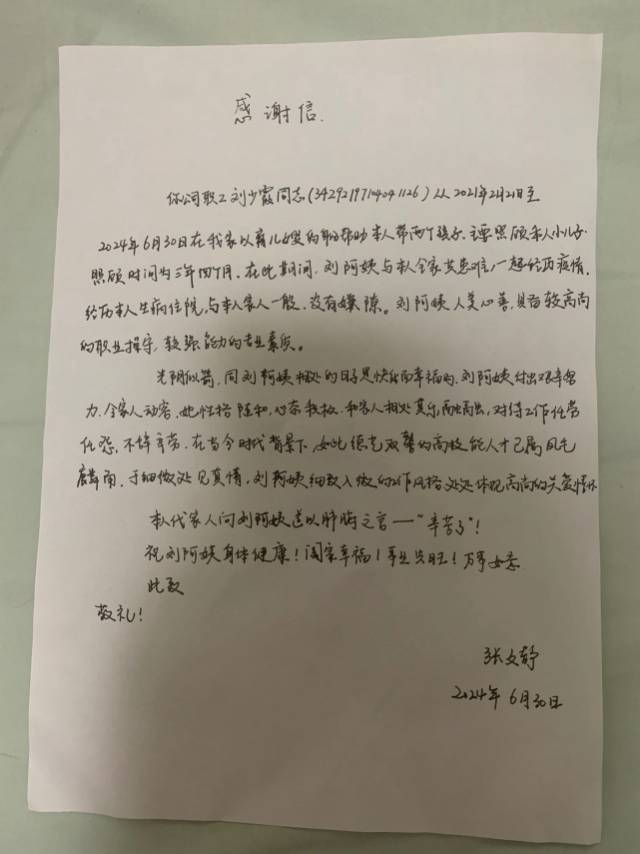 感谢信.
你公司职工刘少霞同志(342921971404041126)从2021年2月21日至
2024年6月30日在我家以育儿嫂的职务帮助本人带两个孩子.主要照顾本人小儿子
照顾时间为三年四个月.在此期间,刘阿姨与本人全家共患难,一起经历疫情,
经历本人生病住院,与本人家人一般,没有嫌隙。刘阿姨人美心善,具备较高尚
的职业操守,较强能力的专业素质。
光阴似箭,同刘阿姨相处的日子是快乐而幸福的.刘阿姨付出艰辛努
力,令家人动容,她性格随和,心态积极,和家人相处其乐融融,对待工作任劳
任怨,不辞辛劳,在当今时代背景下,如此德艺双馨的高技能人才已属凤毛
麟角,于细微处见真情,刘阿姨细致入微的工作风格处处体现高尚的关爱情怀
本人代家人向刘阿姨送以肺腑之言——"辛苦了"!
祝刘阿姨身体健康!阖家幸福!事业兴旺!万事如意
此致
敬礼!
张文静
2024年6月30日